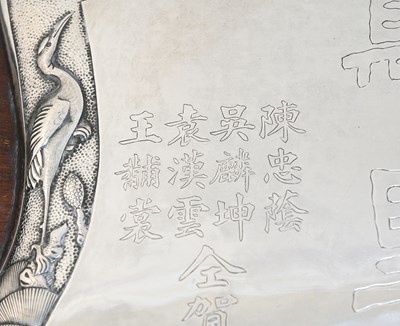 陳忠蔭
吳麟坤
袁漢雲
王黼裳
仝賀